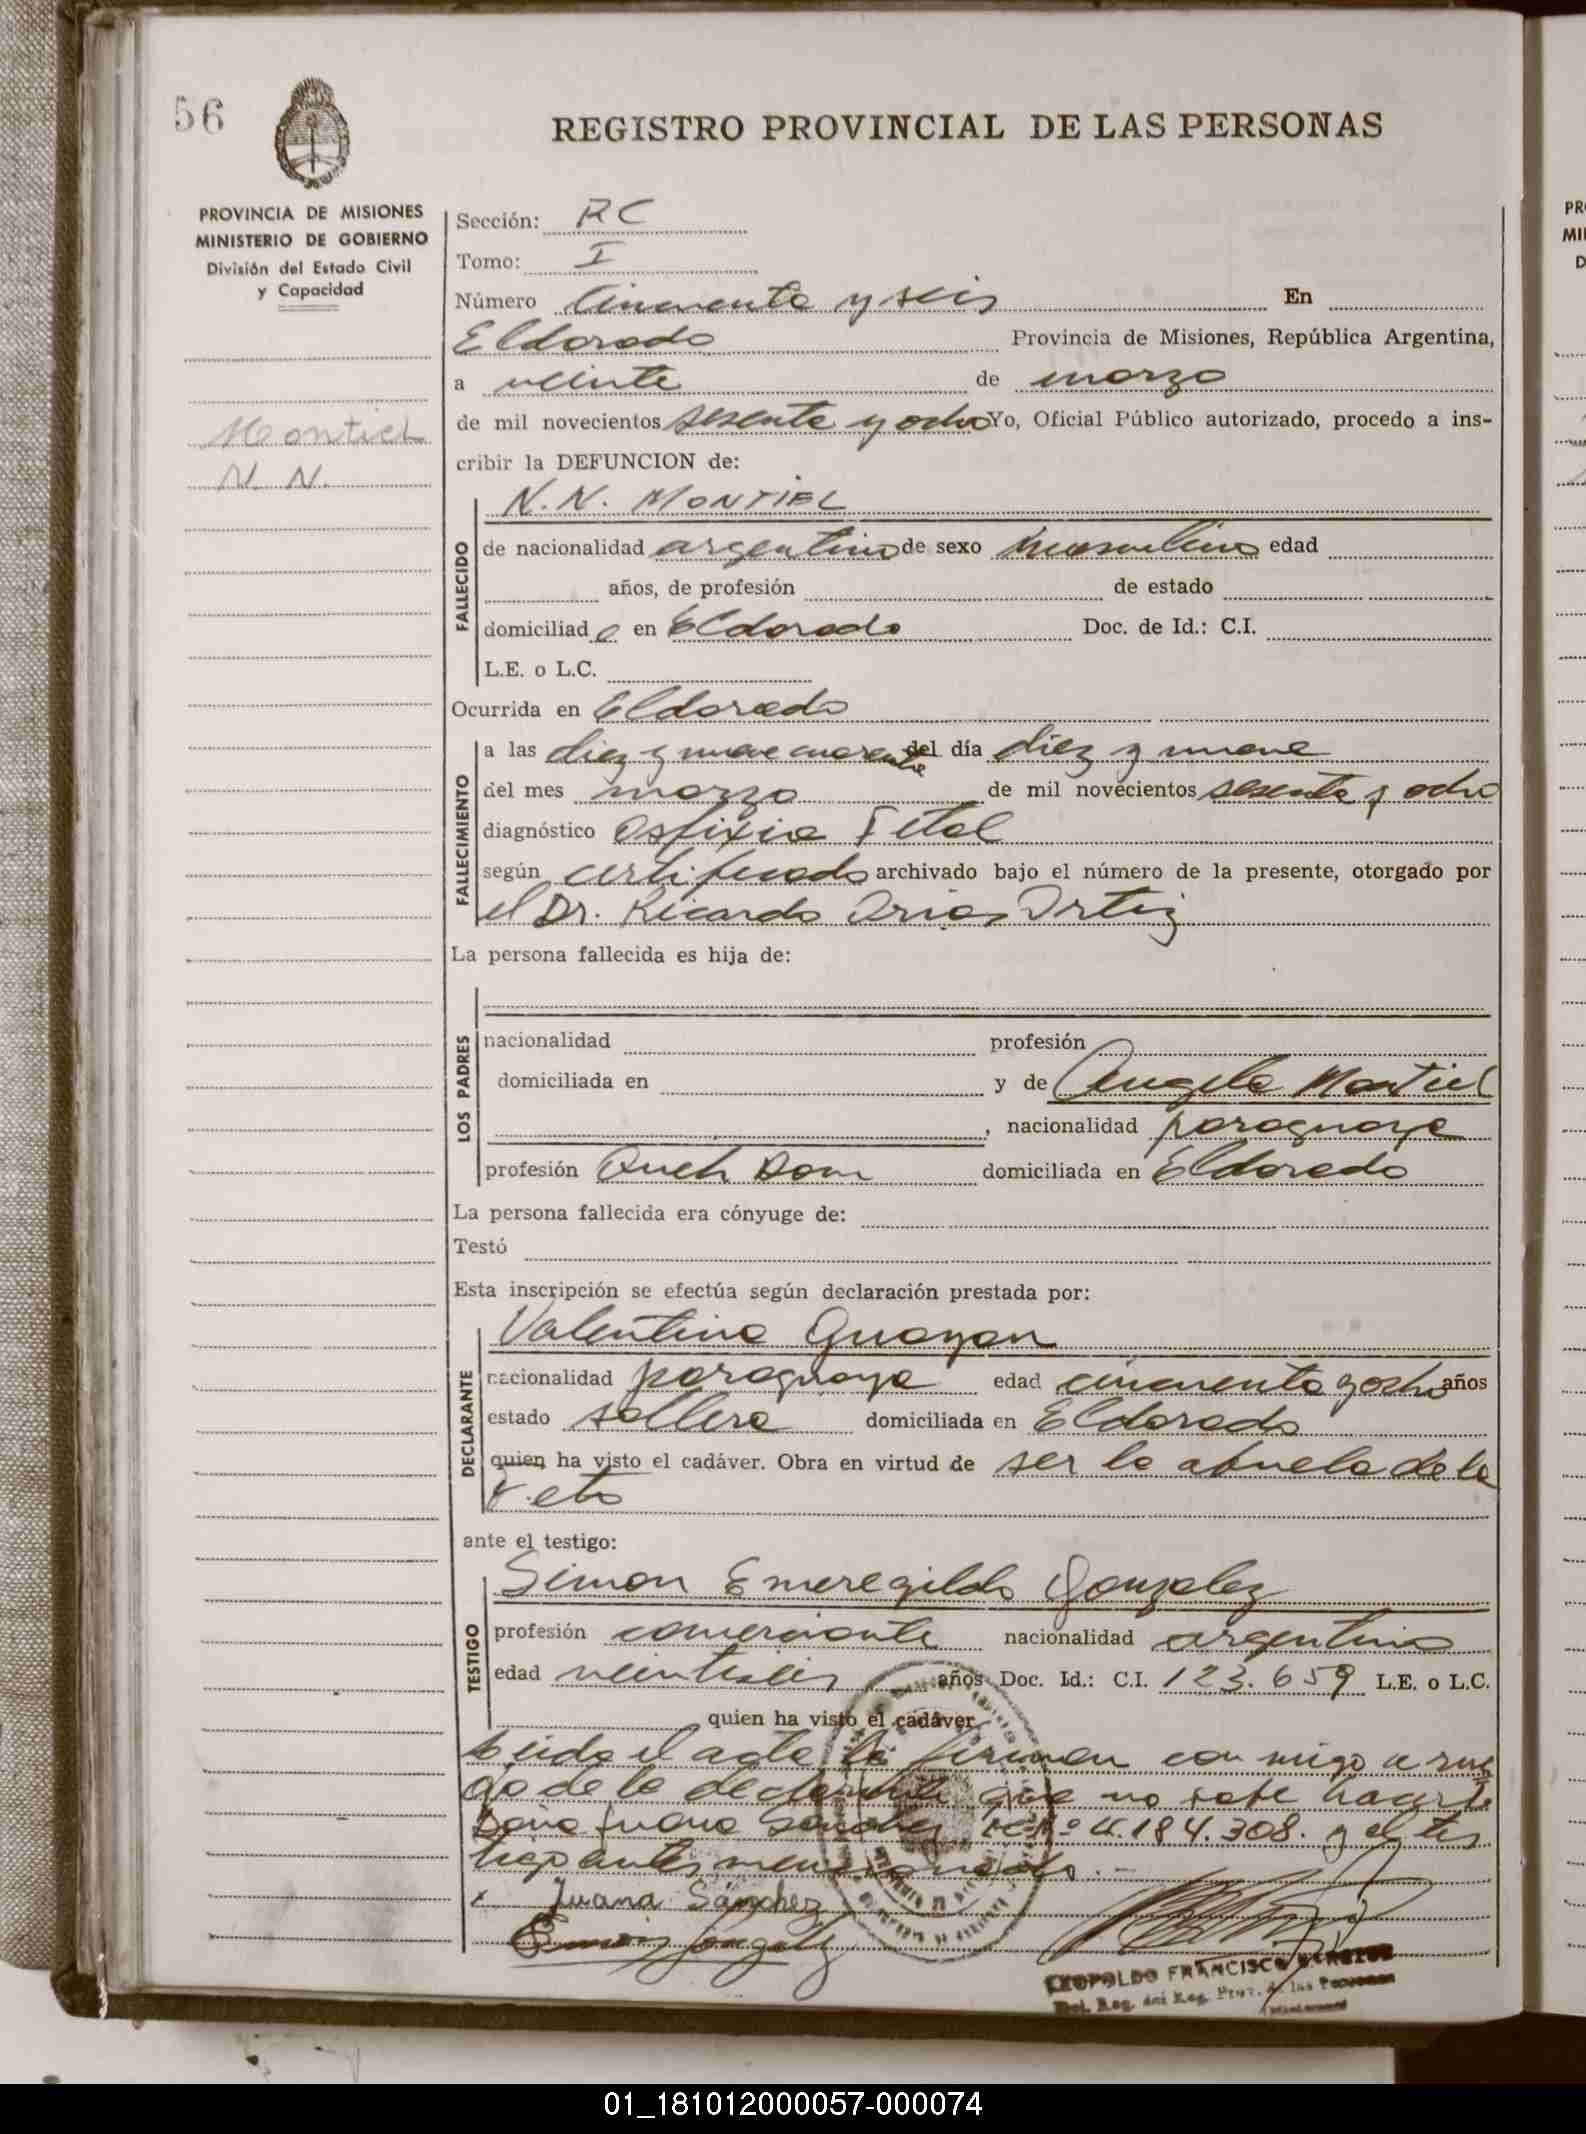 56
REGISTRO PROVINCIAL DE LAS PERSONAS
PROVINCIA DE MISIONES
MINISTERIO DE GOBIERNO
División del Estado Civil
y Capacidad
Montiel
N. N.
Sección: RC
Tomo: I
Número Cincuenta y seis En
Eldorado Provincia de Misiones, República Argentina,
a veinte de marzo
de mil novecientos sesenta y ocho Yo, Oficial Público autorizado, procedo a ins-
cribir la DEFUNCION de:
FALLECIDO
N. N. MONTIEL
de nacionalidad argentino de sexo masculino edad
años, de profesión de estado
domiciliad o en Eldorado Doc. de Id.: C.I.
L.E. o L.C.
Ocurrida en Eldorado
FALLECIMIENTO
a las diez y nueve cuarenta del día diez y nueve
del mes marzo de mil novecientos sesenta y ocho
diagnóstico Asfixia Fetal
según certificado archivado bajo el número de la presente, otorgado por
el Dr. Ricardo Arias Ortiz
La persona fallecida es hija de:
LOS PADRES
nacionalidad profesión
domiciliada en y de Angela Montiel
, nacionalidad paraguaya
profesión Queh Dom domiciliada en Eldorado
La persona fallecida era cónyuge de:
Testó
Esta inscripción se efectúa según declaración prestada por:
DECLARANTE
Valentina Guayan
nacionalidad paraguaya edad cincuenta y ocho años
estado soltera domiciliada en Eldorado
quien ha visto el cadáver. Obra en virtud de ser la abuela de la
ante el testigo:
TESTIGO
Simon Emeregildo Gonzalez
profesión comerciante nacionalidad argentino
edad veintiseis años Doc. Id.: C.I. 123.659 L.E. o L.C.
quien ha visto el cadáver
Leida el acta la firman con migo a rue
go de la declarante que no sabe hacerlo
Doña Juana Sanchez Nº 4.184.308. y el tes
tigo antes mencionado. -
x Juana Sánchez
Simon Gonzalez
LEOPOLDO FRANCISCO
Del. Reg. del Reg. Prov. de las Personas
01_181012000057-000074